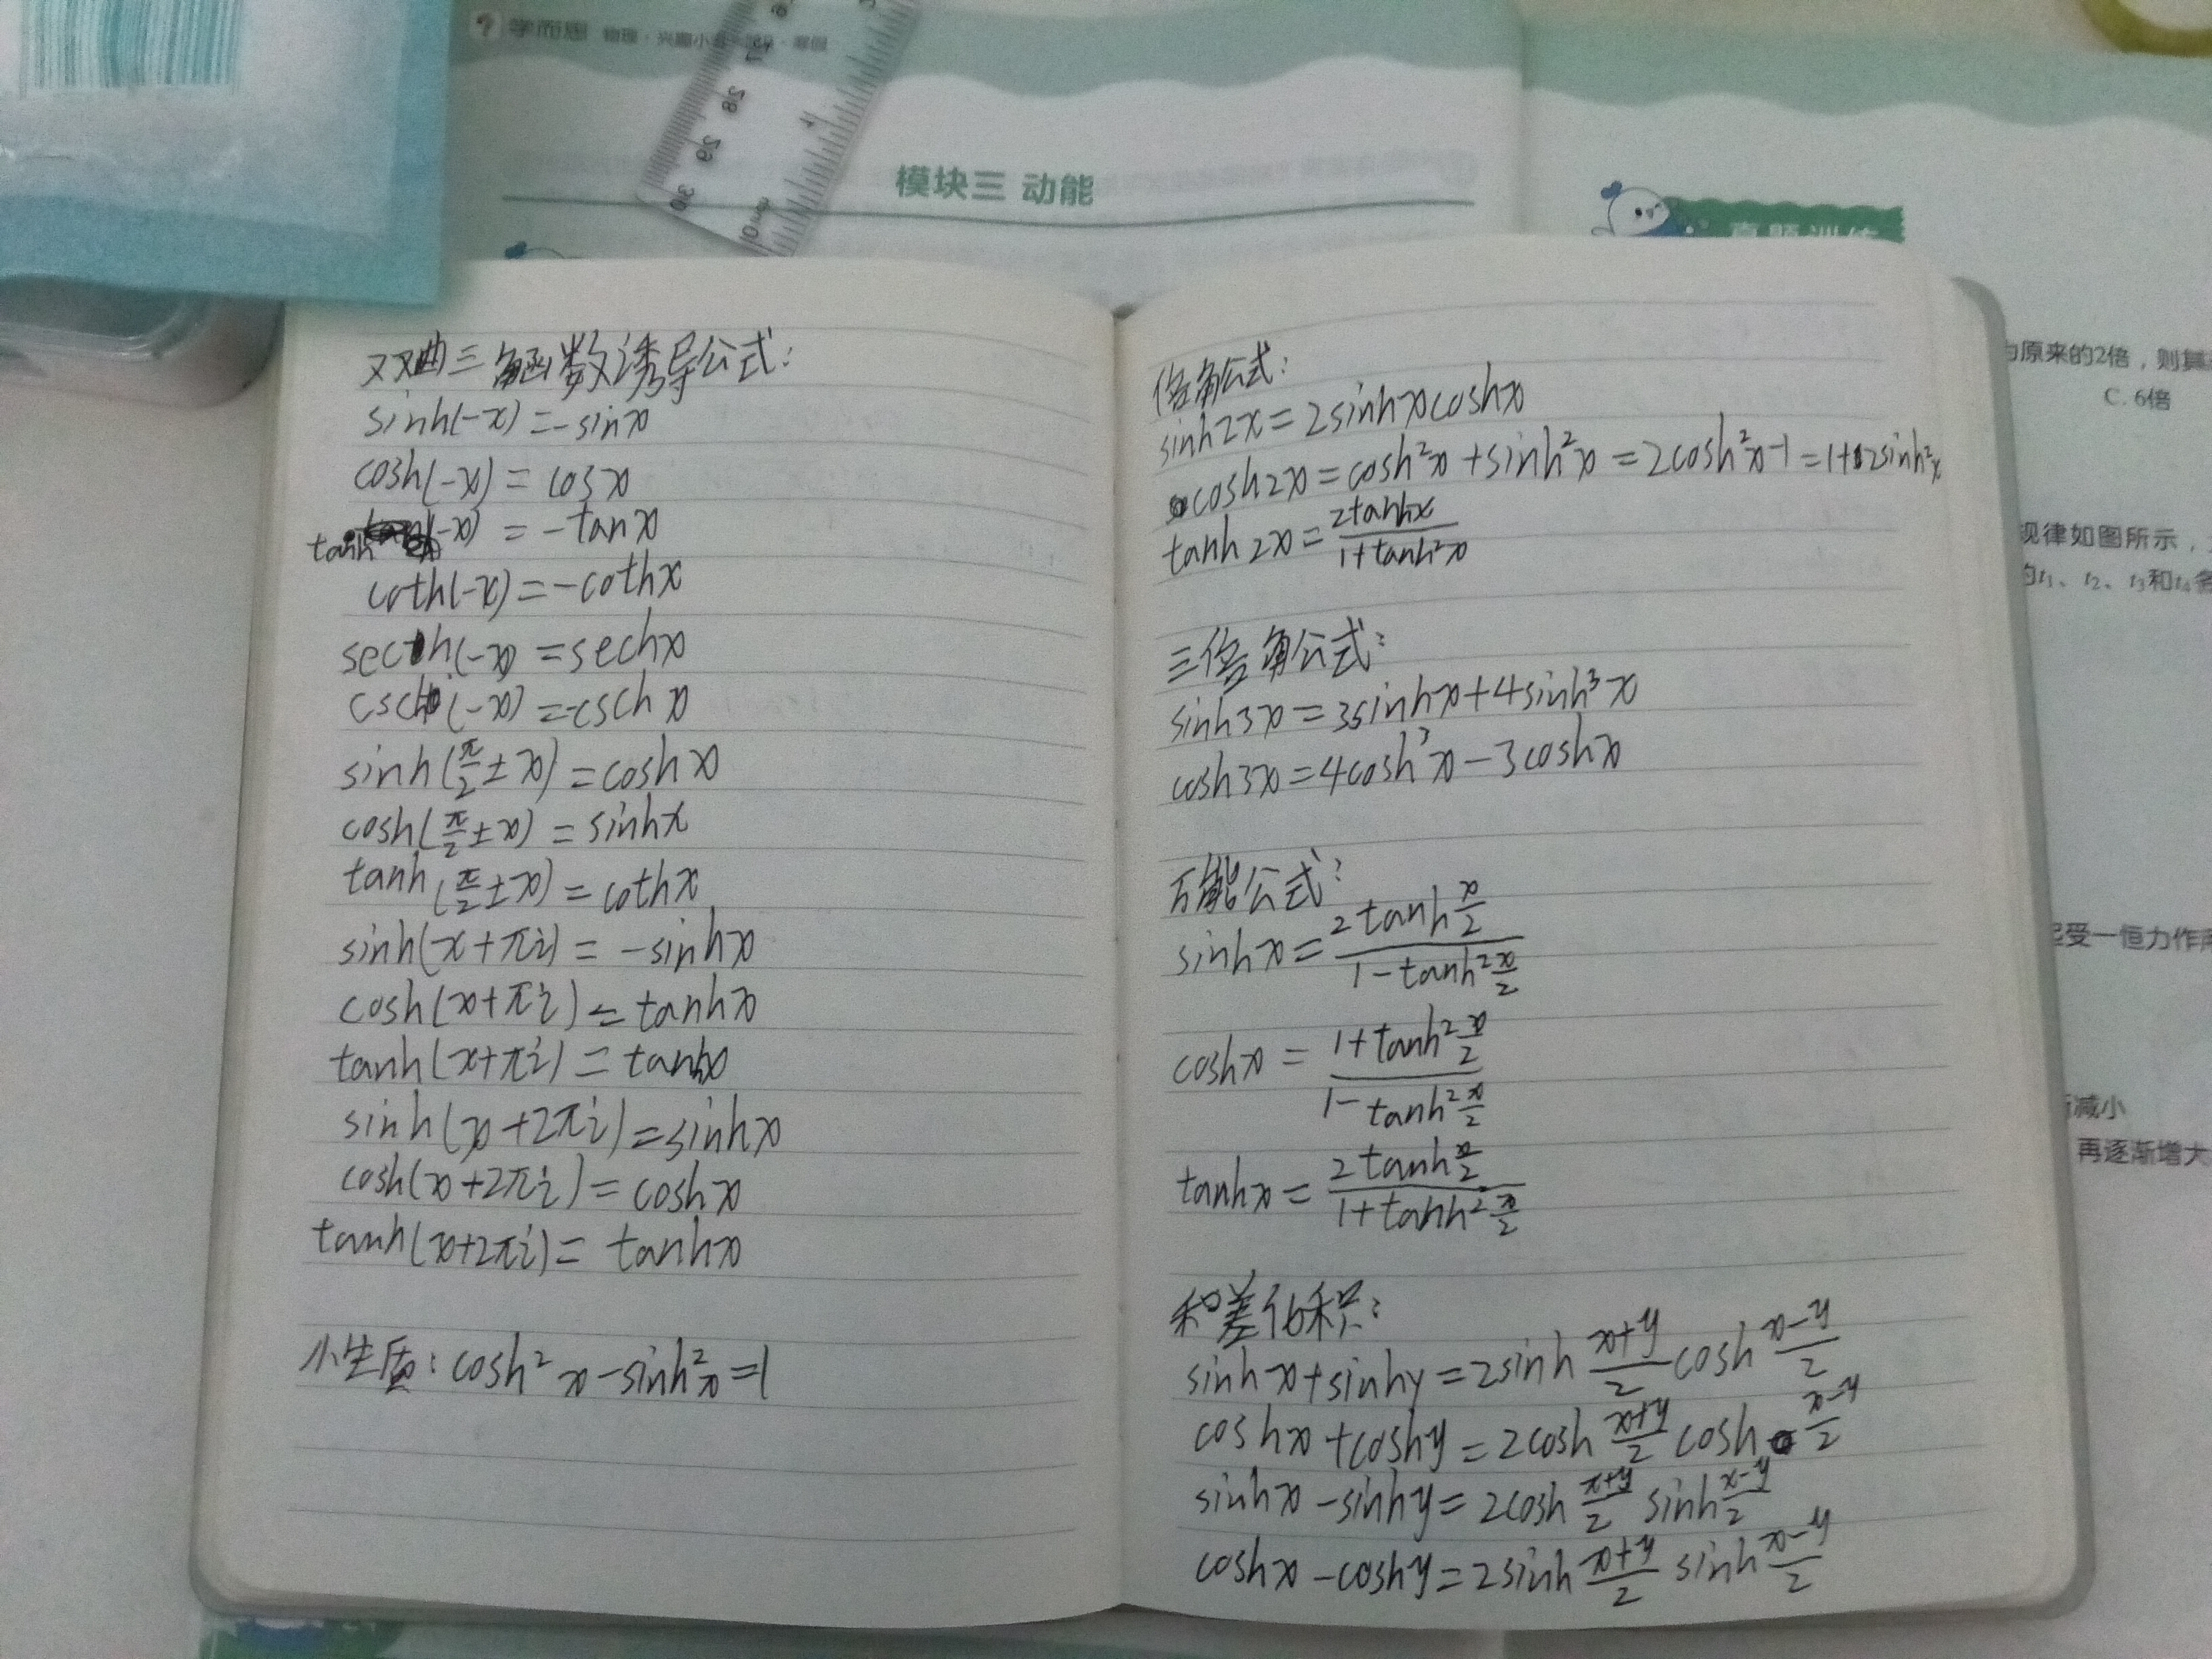 学而思 物理·
模块三 动能
真题训练
双曲三角函数诱导公式：
sinh(-x)=-sinx
cosh(-x)=cosx
tanh(-x)=-tanx
coth(-x)=-cothx
sech(-x)=sechx
csch(-x)=-cschx
sinh(π/2±x)=coshx
cosh(π/2±x)=sinhx
tanh(π/2±x)=cothx
sinh(x+πi)=-sinhx
cosh(x+πi)=tanhx
tanh(x+πi)=tanhx
sinh(x+2πi)=sinhx
cosh(x+2πi)=coshx
tanh(x+2πi)=tanhx
小生质：cosh²x-sinh²x=1
倍角公式：
sinh2x=2sinhxcoshx
cosh2x=cosh²x+sinh²x=2cosh²x-1=1+2sinh²x
tanh2x=2tanhx/(1+tanh²x)
三倍角公式：
sinh3x=3sinhx+4sinh³x
cosh3x=4cosh³x-3coshx
万能公式：
sinhx=2tanh(x/2)/(1-tanh²(x/2))
coshx=(1+tanh²(x/2))/(1-tanh²(x/2))
tanhx=2tanh(x/2)/(1+tanh²(x/2))
和差化积：
sinhx+sinhy=2sinh((x+y)/2)cosh((x-y)/2)
coshx+coshy=2cosh((x+y)/2)cosh((x-y)/2)
sinhx-sinhy=2cosh((x+y)/2)sinh((x-y)/2)
coshx-coshy=2sinh((x+y)/2)sinh((x-y)/2)
为原来的2倍，则其
C. 6倍
规律如图所示，
的t₁、t₂、t₃和t₄各
受一恒力作用
减小
再逐渐增大
27
28
29
30